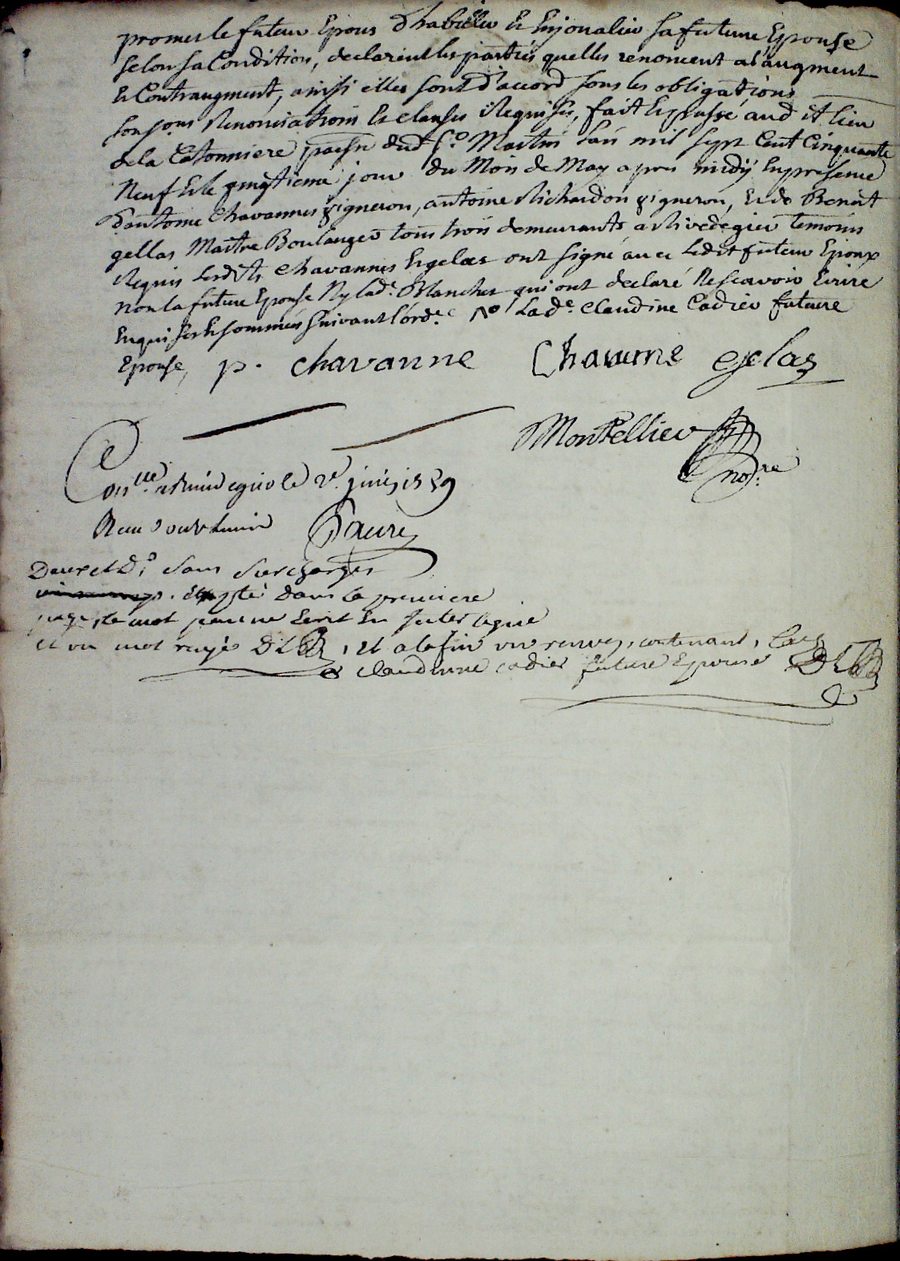 promet le futeur Epoux D'habiller et Enjoualier sa future Epouse
selon sa Condition, declarent les parties quelles renoncent a l'augment
Et Contraugment, ainsi elles sont d'accord sous les obligations
soumons Renonciations et clauses Requises, fait Et passé aud it lieu
de la Catonniere paroisse dud St Martin Lan mil sept Cent Cinquante
Neuf Et le vingtieme jour du Mois de May apres midÿ En presence
d'antoine Chavannes vigneron, antoine Richardon vigneron, Et de Benoit
gellas Maître Boulanger tous trois demeurants a Rivedegier temoins
Requis Lesdits Chavannes Et gelas ont signé avec Ledit futeur Epoux
Non la future Epouse Ny lad. Blanchet qui ont declaré Ne scavoir Ecrire
Enquises Et sommées suivant l'ord.e Lad.e Claudine Cadier future
Epouse, p. chavanne Chaume gelas
Montellier
no.re
Con.lle a Rivedegier le 2e juin 1759
Faure
Deux et D. sans surcharges
dans la premiere
page, le mot Ecrit En Interligne
et un mot rayé D L, Et a la fin un renvoy, contenant, Lad
claudinne cadier future Epouse D L